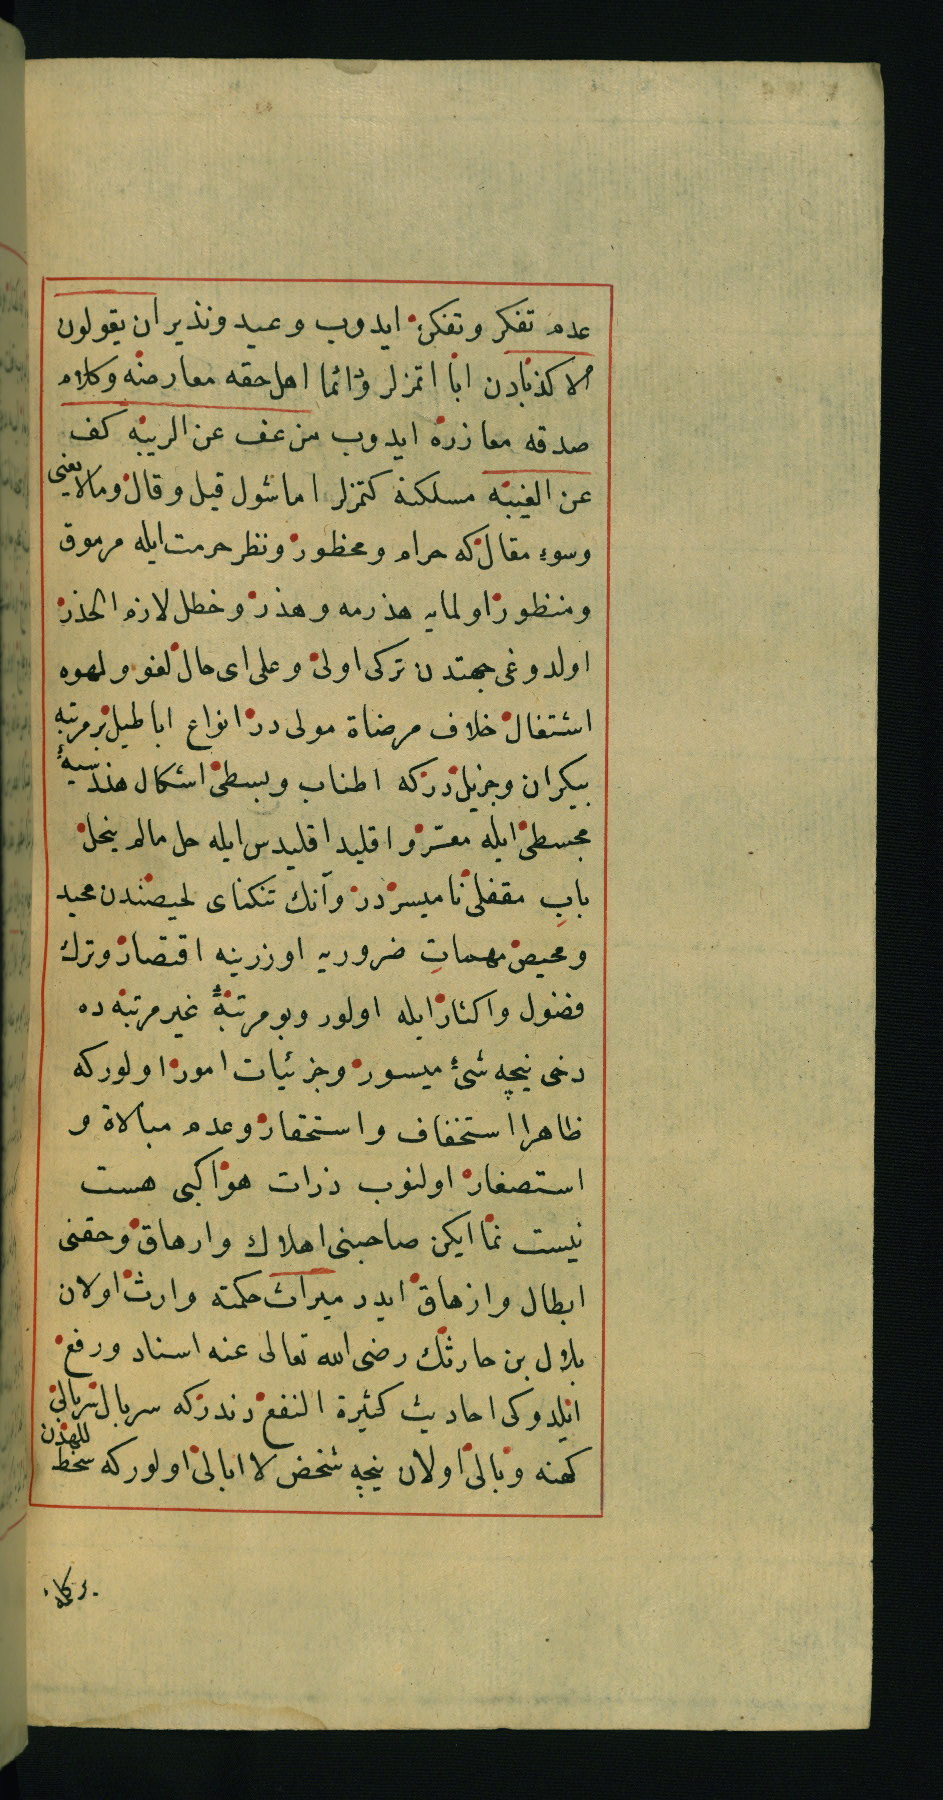 عدم تفكر وتفكن ايدوب وعيد ونذير ان يقولون
الا كذبادن ابا اتمزلر ودائما اهل حقه معارضه وكلام
صدقه معازره ايدوب من عف عن الريبه كف
عن الغيبه مسلكنه كتمزلر اما شول قيل وقال ومالا يعنى
وسوء مقال كه حرام ومحظور ونظر حرمت ايله مرموق
ومنظور اولمايه هذرمه وهذر وخطل لازم الحذر
اولدوغى جهتدن تركى اولى وعلى اى حال لغو ولهوه
اشتغال خلاف مرضاة مولى در انواع اباطيل بر مرتبه
بيكران وجزيل در كه اطناب وبسطى اشكال هندسيهٔ
مجسطى ايله معسر و اقليد اقليدس ايله حل مالم ينحل
باب مقفلى نا ميسر در وآنك تنكناى لحيصندن محيد
ومحيص مهمات ضروريه اوزرينه اقتصار وترك
فضول واكثار ايله اولور وبو مرتبهٔ غير مرتبه ده
دخى نيچه شئ ميسور وجزئيات امور اولور كه
ظاهرا استخفاف واستحقار وعدم مبالاة و
استصغار اولنوب ذرات هوا كبى هست
نيست نما ايكن صاحبنى اهلاك وارهاق وحقنى
ابطال وازهاق ايدر ميراث حكمته وارث اولان
بلال بن حارثك رضى الله تعالى عنه اسناد ورفع
ايلدوكى احاديث كثيرة النفع دندر كه سربال سربالى
كهنه وبالى اولان نيچه شخص لا ابالى اولور كه سخط للهدن
بر كلمه